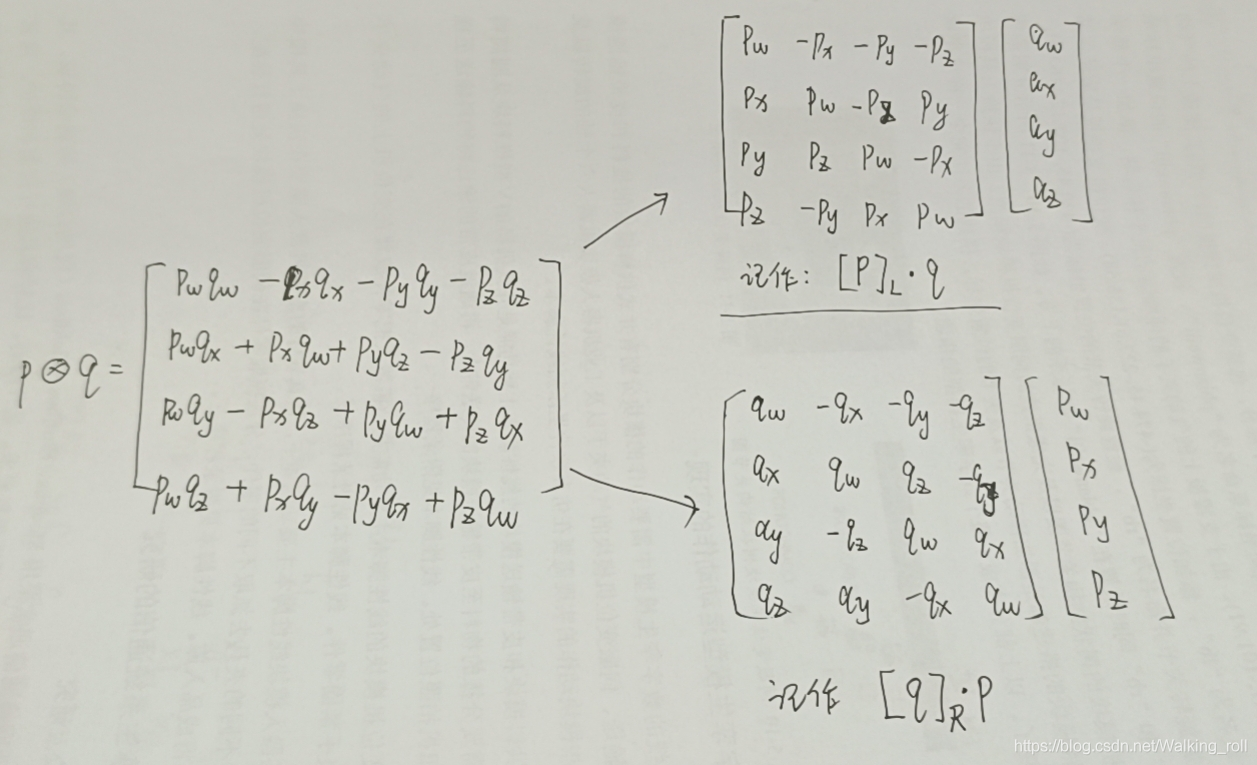 p ⊗ q =
p_w q_w - p_x q_x - p_y q_y - p_z q_z
p_w q_x + p_x q_w + p_y q_z - p_z q_y
p_w q_y - p_x q_z + p_y q_w + p_z q_x
p_w q_z + p_x q_y - p_y q_x + p_z q_w
p_w -p_x -p_y -p_z q_w
p_x p_w -p_z p_y q_x
p_y p_z p_w -p_x q_y
p_z -p_y p_x p_w q_z
记作: [P]_L · q
q_w -q_x -q_y -q_z p_w
q_x q_w q_z -q_y p_x
q_y -q_z q_w q_x p_y
q_z q_y -q_x q_w p_z
记作 [q]_R · P
https://blog.csdn.net/Walking_roll